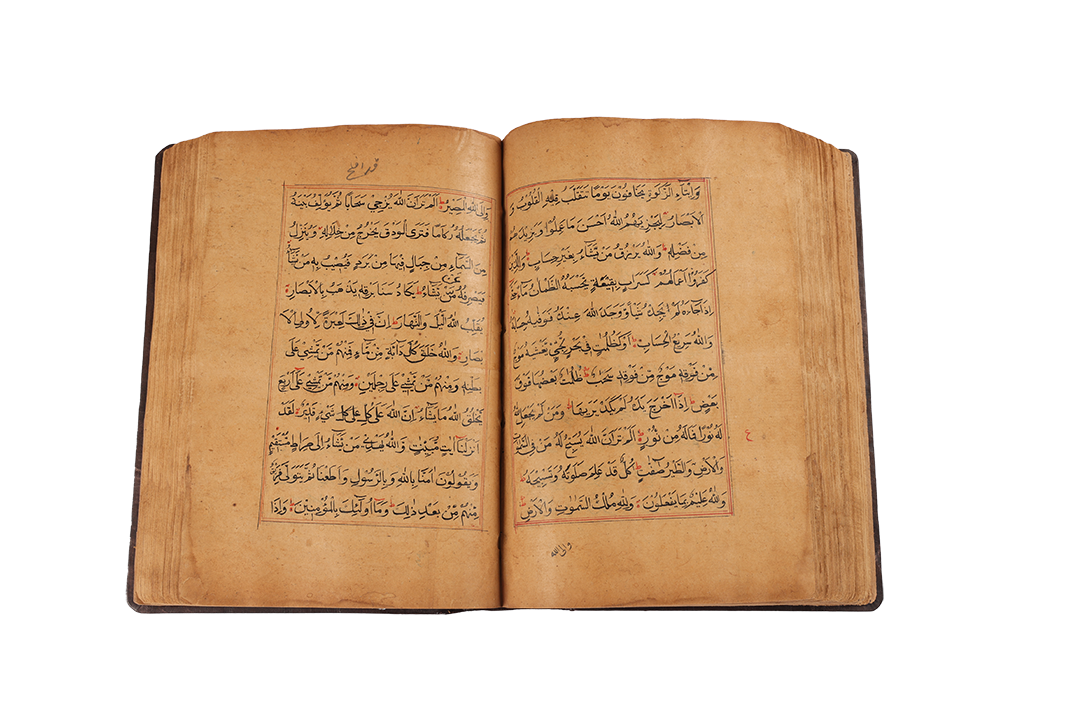 وَاِيْتَآءِ الزَّكٰوةِ يَخَافُوْنَ يَوْمًا تَتَقَلَّبُ فِيْهِ الْقُلُوْبُ وَ
الْاَبْصَارُ لِيَجْزِيَهُمُ اللّٰهُ اَحْسَنَ مَا عَمِلُوْا وَيَزِيْدَهُمْ
مِنْ فَضْلِهٖ وَاللّٰهُ يَرْزُقُ مَنْ يَّشَآءُ بِغَيْرِ حِسَابٍ وَالَّذِيْنَ
كَفَرُوْا اَعْمَالُهُمْ كَسَرَابٍ بِقِيْعَةٍ يَحْسَبُهُ الظَّمْاٰنُ مَآءً حَتّٰى
اِذَا جَآءَهُ لَمْ يَجِدْهُ شَيْأً وَّوَجَدَ اللّٰهَ عِنْدَهُ فَوَفّٰهُ حِسَابَهُ
وَاللّٰهُ سَرِيْعُ الْحِسَابِ اَوْ كَظُلُمٰتٍ فِيْ بَحْرٍ لُّجِّيٍّ يَغْشٰهُ مَوْجٌ
مِّنْ فَوْقِهٖ مَوْجٌ مِّنْ فَوْقِهٖ سَحَابٌ ظُلُمٰتٌ بَعْضُهَا فَوْقَ
بَعْضٍ اِذَآ اَخْرَجَ يَدَهُ لَمْ يَكَدْ يَرٰىهَا وَمَنْ لَّمْ يَجْعَلِ اللّٰهُ
لَهُ نُوْرًا فَمَالَهُ مِنْ نُّوْرٍ اَلَمْ تَرَ اَنَّ اللّٰهَ يُسَبِّحُ لَهُ مَنْ فِي السَّمٰوٰتِ
ع
وَالْاَرْضِ وَالطَّيْرُ صٰٓفّٰتٍ كُلٌّ قَدْ عَلِمَ صَلَوتَهُ وَتَسْبِيْحَهُ
وَاللّٰهُ عَلِيْمٌ بِمَا يَفْعَلُوْنَ وَلِلّٰهِ مُلْكُ السَّمٰوٰتِ وَالْاَرْضِ
والى الله
قد افلح
وَاِلَى اللّٰهِ الْمَصِيْرُ اَلَمْ تَرَ اَنَّ اللّٰهَ يُزْجِيْ سَحَابًا ثُمَّ يُؤَلِّفُ بَيْنَهُ
ثُمَّ يَجْعَلُهُ رُكَامًا فَتَرَى الْوَدْقَ يَخْرُجُ مِنْ خِلَالِهٖ وَيُنَزِّلُ
مِنَ السَّمَآءِ مِنْ جِبَالٍ فِيْهَا مِنْ بَرَدٍ فَيُصِيْبُ بِهٖ مَنْ يَّشَآءُ
فَيَصْرِفُهُ عَنْ مَّنْ يَّشَآءُ يَكَادُ سَنَا بَرْقِهٖ يَذْهَبُ بِالْاَبْصَارِ
يُقَلِّبُ اللّٰهُ الَّيْلَ وَالنَّهَارَ اِنَّ فِيْ ذٰلِكَ لَعِبْرَةً لِّاُولِي الْاَ
بْصَارِ وَاللّٰهُ خَلَقَ كُلَّ دَآبَّةٍ مِّنْ مَّآءٍ فَمِنْهُمْ مَّنْ يَّمْشِيْ عَلٰى
بَطْنِهٖ وَمِنْهُمْ مَّنْ يَّمْشِيْ عَلٰى رِجْلَيْنِ وَمِنْهُمْ مَّنْ يَّمْشِيْ عَلٰى اَرْبَعٍ
يَخْلُقُ اللّٰهُ مَا يَشَآءُ اِنَّ اللّٰهَ عَلٰى كُلِّ عَلٰى كُلِّ شَيْءٍ قَدِيْرٌ لَقَدْ
اَنْزَلْنَآ اٰيٰتٍ مُّبَيِّنٰتٍ وَاللّٰهُ يَهْدِيْ مَنْ يَّشَآءُ اِلٰى صِرَاطٍ مُّسْتَقِيْمٍ
وَيَقُوْلُوْنَ اٰمَنَّا بِاللّٰهِ وَبِالرَّسُوْلِ وَاَطَعْنَا ثُمَّ يَتَوَلّٰى فَرِيْقٌ
مِّنْهُمْ مِّنْ بَعْدِ ذٰلِكَ وَمَآ اُولٰٓئِكَ بِالْمُؤْمِنِيْنَ وَاِذَا